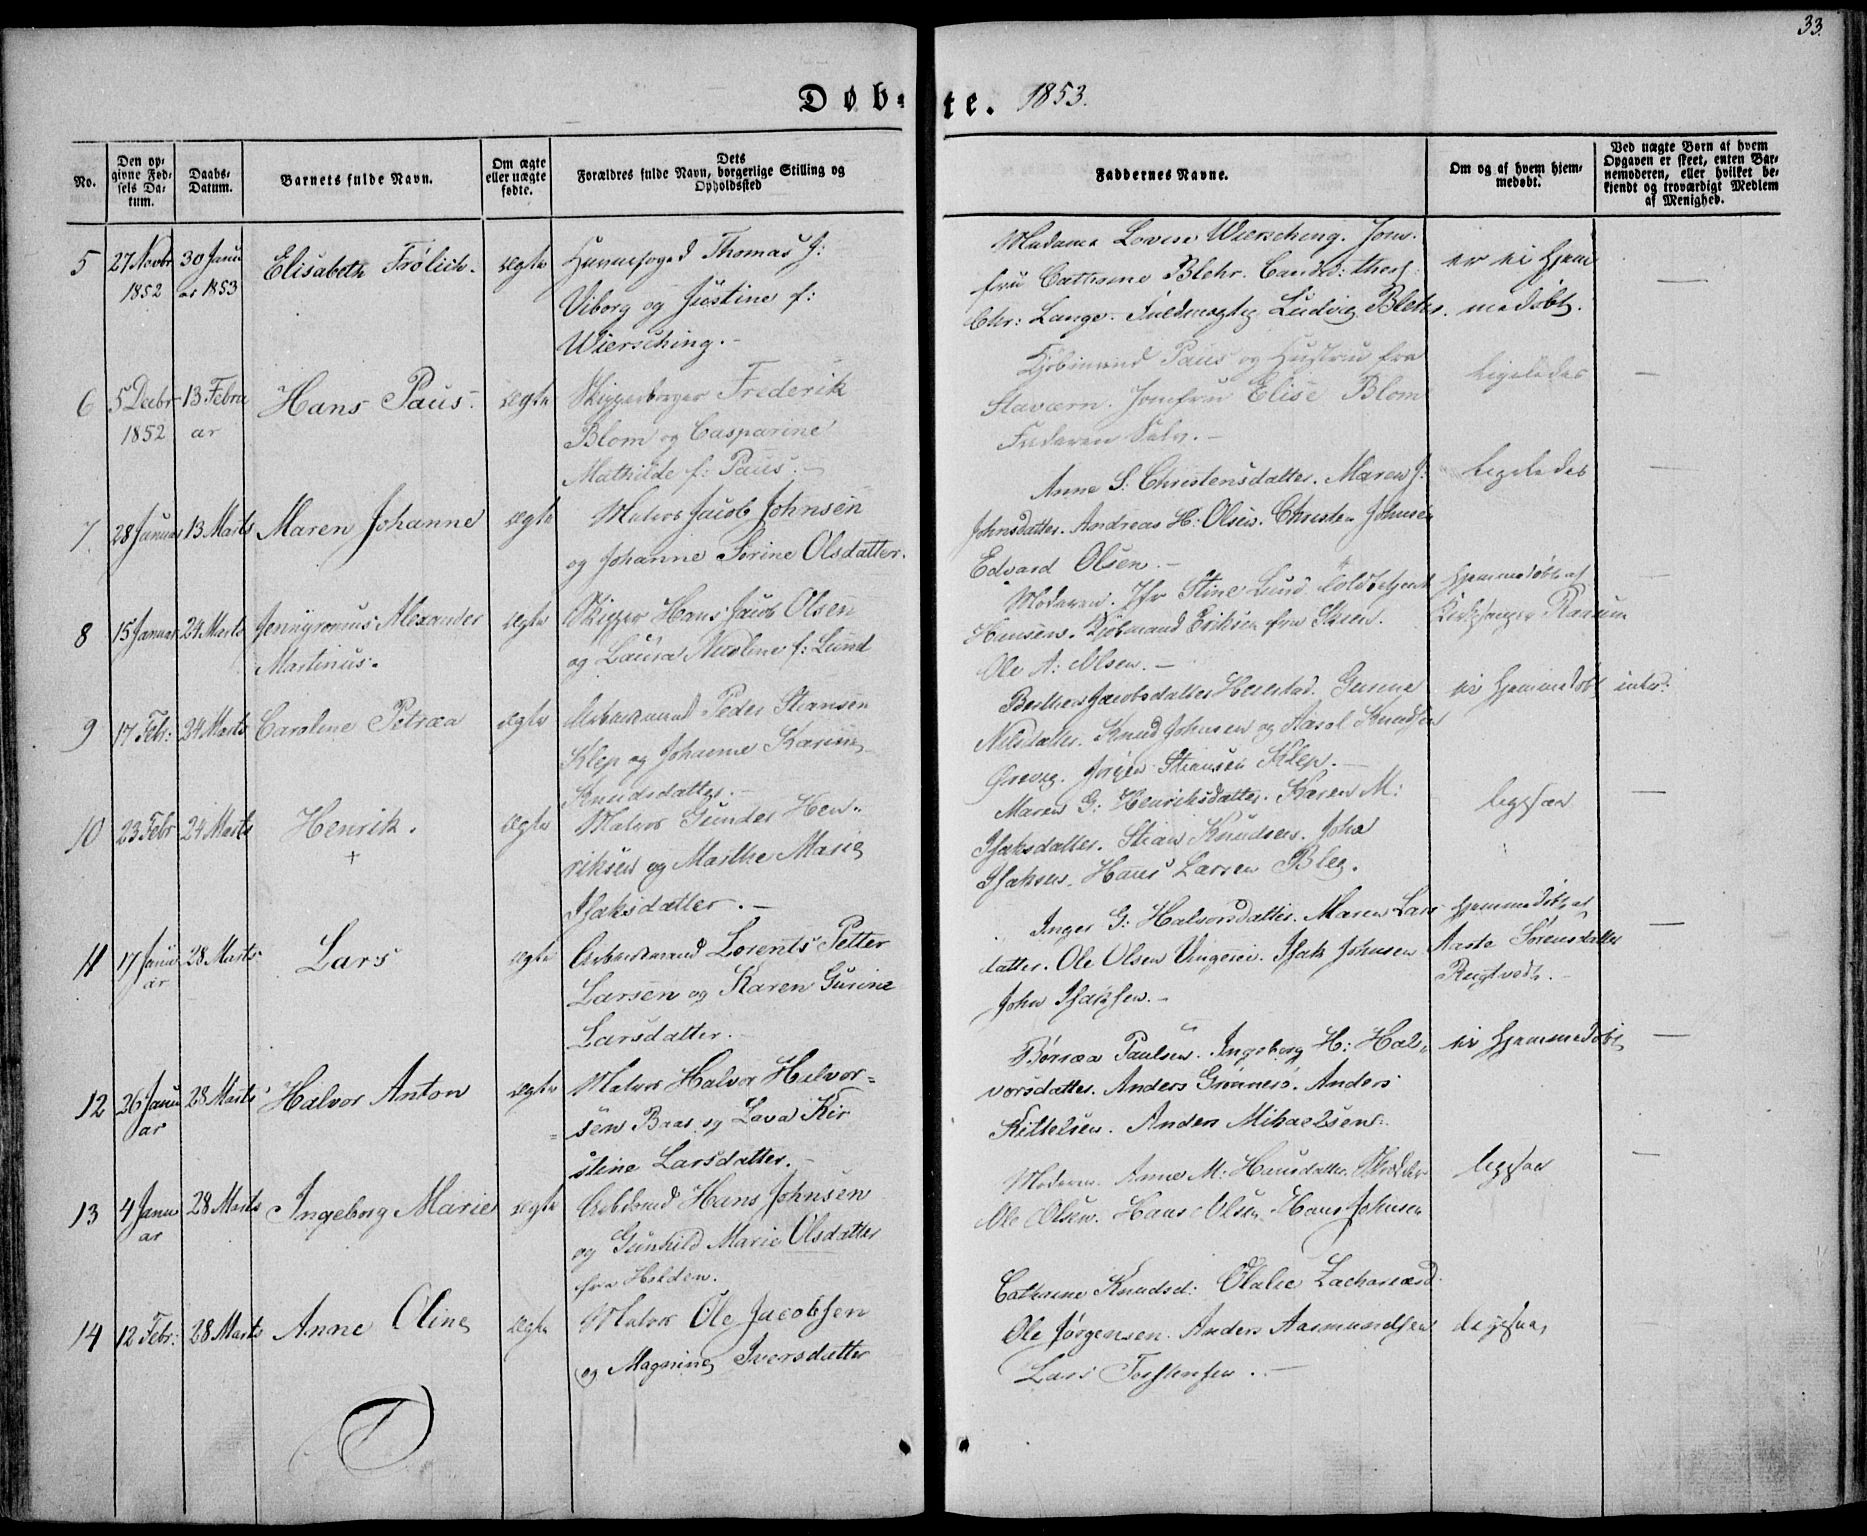 33.
Døb-te. 1853.
No.
Den op-
givne Fød-
sels Da-
tum.
Daabs-
Datum.
Barnets fulde Navn.
Om ægte
eller uægte
fødte.
Dets
Forældres fulde Navn, borgerlige Stilling og
Opholdssted
Faddernes Navne.
Om og af hvem hjem-
medøbt.
Ved uægte Børn af hvem
Opgaven er skeet, enten Bar-
nemoderen, eller hvilket be-
kjendt og troværdigt Medlem
af Menighed.
5
27 Novbr
1852
30 Janu
ar 1853
Elisabeth Frølich.
ægte
Thomas J:
Viborg og Justine f:
Wiersching.-
Madame Lovise Wiersching. Jom-
fru Cathrine Blehr. Candid: theol:
Chr: Lange. Fuldmægtig Ludvig Blehr.
er ei hjem
medøbt.
—
6
5 Decbr
1852
13 Febru
ar
Hans Paus.
ægte
Skibsbygger Frederik
Blom og Casparine
Mathilde f: Paus.-
Kjøbmand Paus og Hustru fra
Staværn. Jomfru Elise Blom
Faderen Selv.-
ligeledes
—
7.
28 Januar
13 Marts
Maren Johanne
ægte
Matros Jacob Johnsen
og Johanne Sorine Olsdatter.
Anne S: Christensdatter. Maren J:
Johnsdatter. Andreas H: Olsen. Christen Johnsen
Edvard Olsen.-
ligeledes
—
8
15 Januar
24 Marts
Alexander
Martinus.
ægte
Skipper Hans Jacob Olsen
og Laura Nicoline f: Lund
Moderen. Jfr Stine Lund. Toldbetjent
Hansen. Kjøbmand Eriksen fra Skien.
Ole A: Olsen.-
hjemmedøbt af
Kirkesanger
—
9
17 Febr:
24 Marts
Caroline Petræa
ægte
Arbeidsmand Peder Stiansen
Klep og Johanne Karine
Knudsdatter.-
Berthe Jacobsdatter Gurine
Nilsdatter. Knud Johnsen og Aasol Knudsen
Ørevig. Jørgen Stiansen Klep.-
ei hjemmedøbt
10
23 Febr
24 Marts
Henrik.
+
ægte
Matros Gunder Hen-
riksen og Marthe Marie
Isaksdatter.-
Maren G: Henriksdatter. Karen M:
Isaksdatter. Stian Knudsen. John
Isaksen. Hans Larsen Bleg.
ligesaa
—
11
17 Janu
ar
28 Marts
Lars
ægte
Arbeidsmand Lorents Petter
Larsen og Karen Gurine
Larsdatter.
Inger G: Halvorsdatter. Maren Lars
datter. Ole Olsen. Isak Johnsen
John Isaksen.-
hjemmedøbt af
Aaste Sørensdatter
Rugtvedt.-
—
12
26 Janu
ar
28 Marts
Halvor Anton
ægte
Matros Halvor Halvor=
sen Baas og Lava Kir
stine Larsdatter.-
Paulsen. Ingeborg H: Hal-
vorsdatter. Anders Grønnerø. Anders
Kittelsen. Anders Mikaelsen.
ei hjemmedøbt
—
13
4 Janu
ar
28 Marts
Ingeborg Marie
ægte
Arbdsmd Hans Johnsen
og Gunhild Marie Olsdatter
fra Holden.
Moderen. Anne M: Hansdatter. Skrædder
Ole Olsen. Hans Olsen. Hans Johnsen
ligesaa
—
14
12 Febr:
28 Marts
Anne Oline
ægte
Matros Ole Jacobsen
og Magnine Iversdatter
Cathrine Knudsd: Olalie Zachariasd.
Ole Jørgensen. Anders Aasmundsen
Lars Torstensen.-
ligesaa